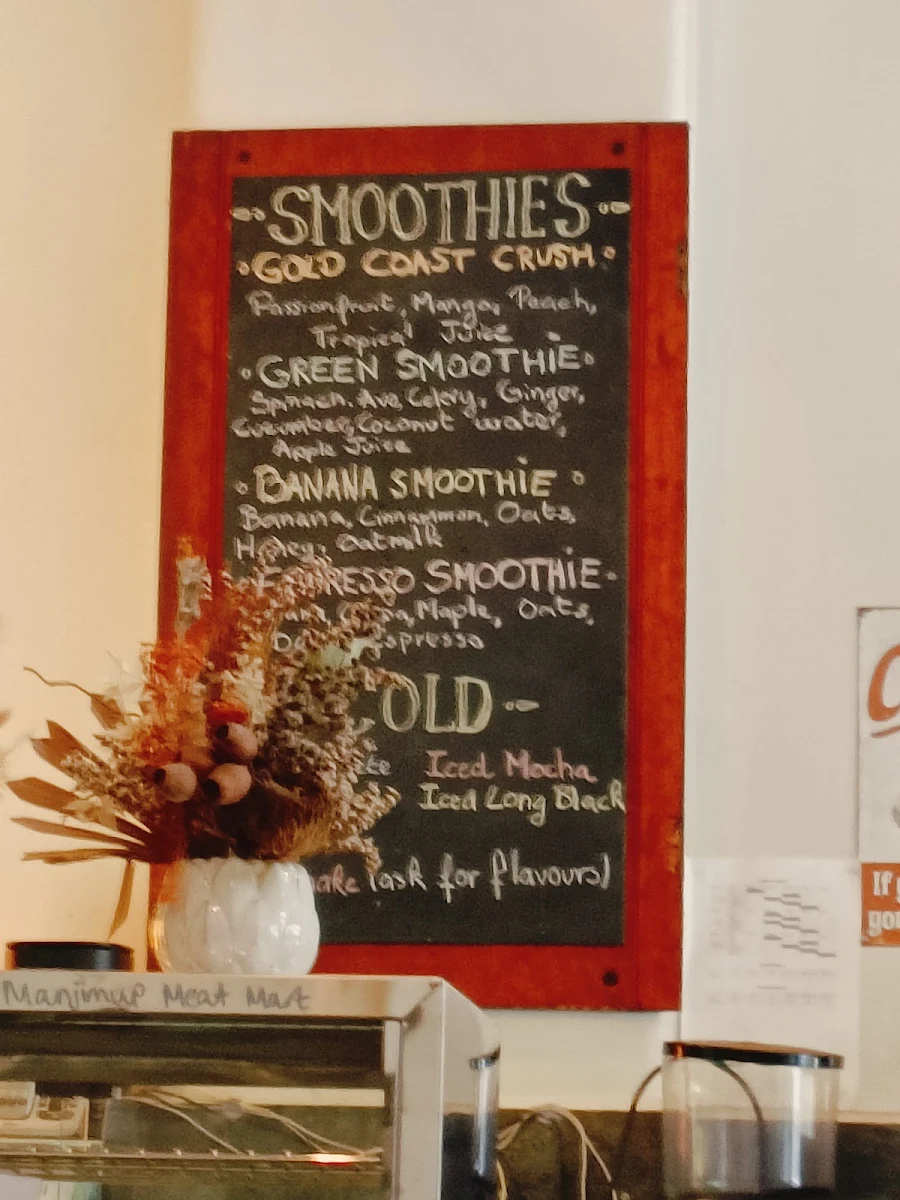 SMOOTHIES
GOLD COAST CRUSH
Passionfruit, Mango, Peach,
Tropical Juice
GREEN SMOOTHIE
Spinach, Avo, Celery, Ginger,
Cucumber, Coconut water,
Apple Juice
BANANA SMOOTHIE
Banana, Cinnammon, Oats,
Honey, Oatmilk
SMOOTHIE
Maple, Oats,
OLD
Iced Mocha
Iced Long Black
(ask for flavours)
Manjimup Meat Mart
If